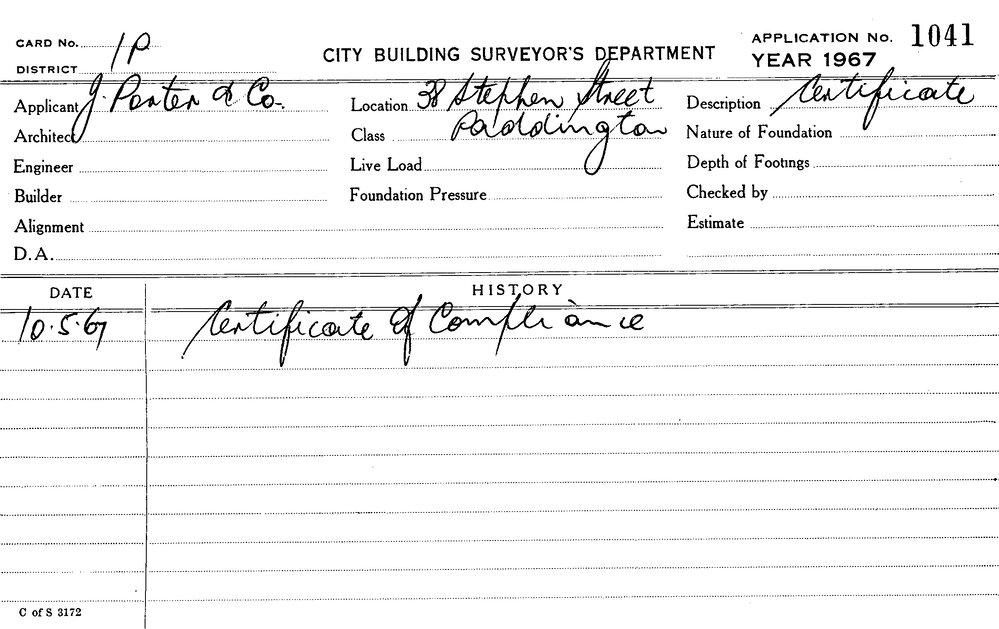 CARD No. 1P
DISTRICT
CITY BUILDING SURVEYOR'S DEPARTMENT
APPLICATION No. 1041
YEAR 1967
Applicant J. Porter & Co.
Location 38 Stephen Street
Description Certificate
Architect
Class Paddington
Nature of Foundation
Engineer
Live Load
Depth of Footings
Builder
Foundation Pressure
Checked by
Alignment
Estimate
D.A.
DATE
HISTORY
10.5.67 Certificate of Compliance
C of S 3172